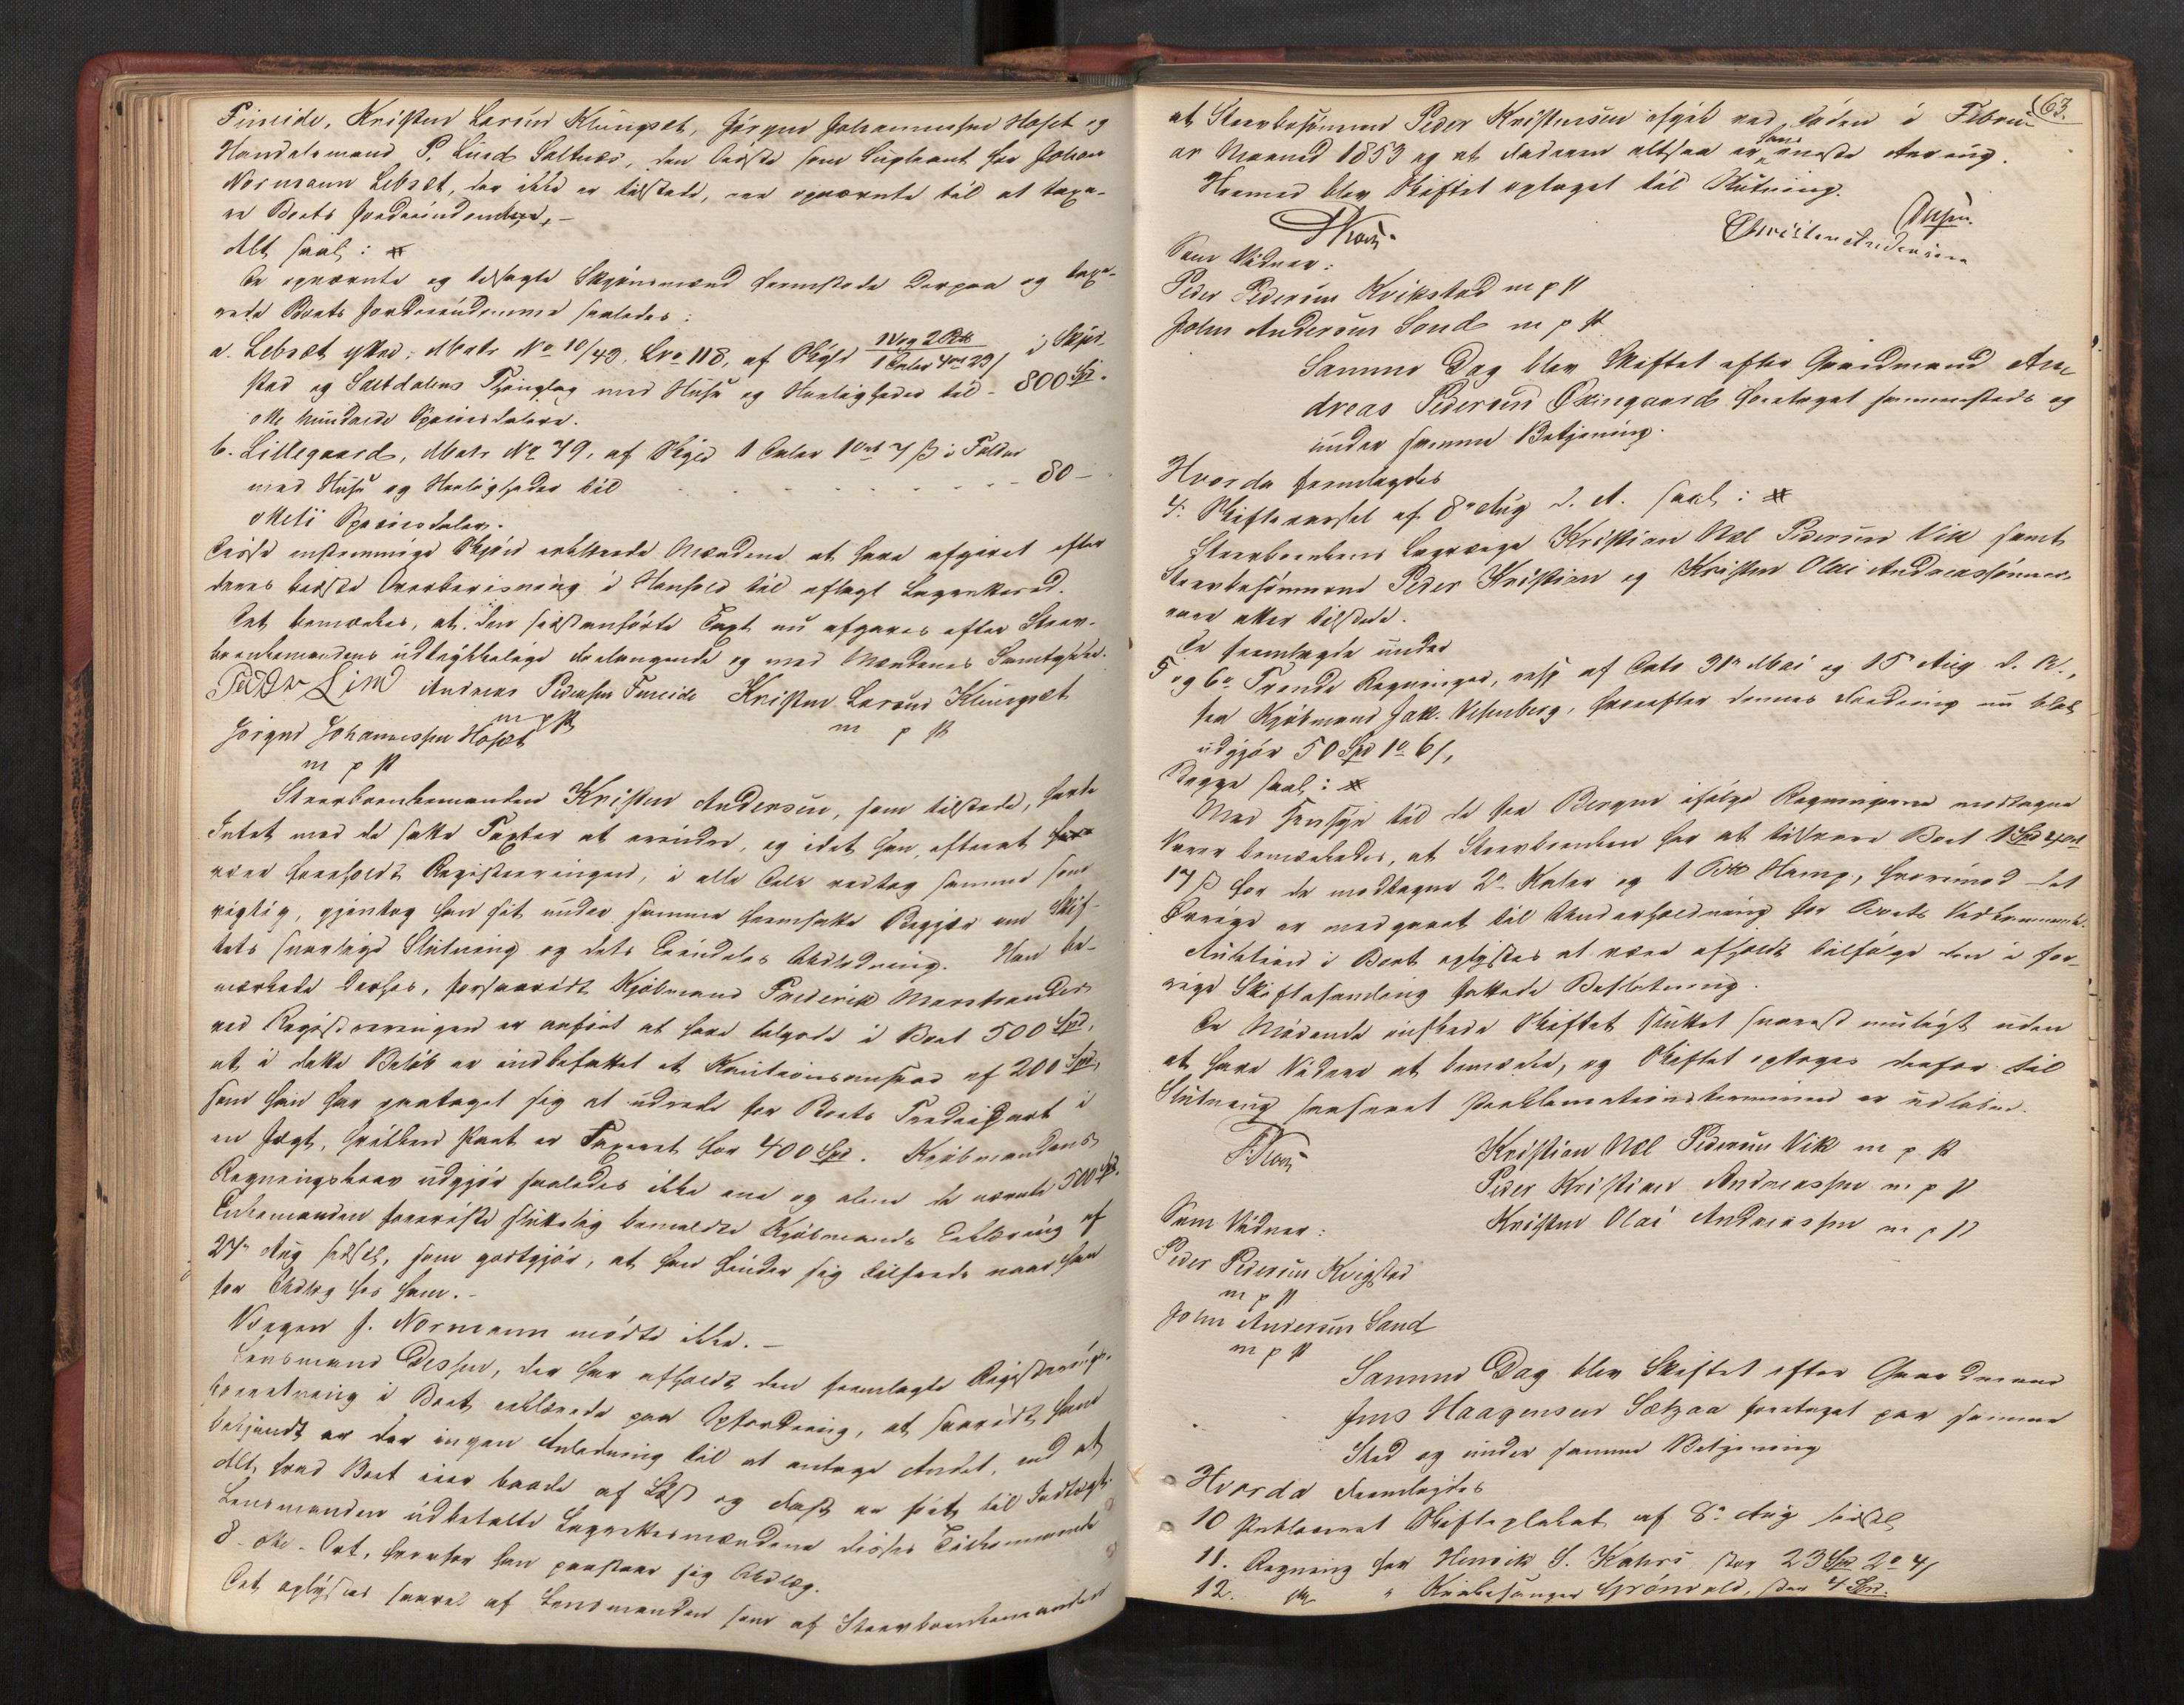 Fineide, Kristen Larsen Klungset, Jörgen Johannessen Hoset og
Handelsmand P. Lund Saltnes, den Sidste som Supleant for Johan
Normann Lebset, der ikke er tilstede, ere opnævnte til at taxe-
re Boets Jordeiendomme, –
Alt saal:
De opnævnte og tilsagte Skjönsmænd fremstode derpaa og taxe-
rede Boets Jordeiendomme saaledes:
a. Lebset ytter, Matr No 10/43, Lno 118, af Skyld 1 Vog 2 Pd i Skjer-
stad og Saltdalens Thinglag med Huse og Herligheder til - 800 Spd.
otte hundrede Speciesdalere.
b. Lillegaard, Matr No 79, af Skyld 1 Daler 1 Ort 7 ß i Folden
med Huse og Herligheder til - 80 –
otteti Speciesdaler.
Disse enstemmige Skjön erklærede Mændene at have afgivet efter
deres bedste Overbevisning i Henhold til aflagt Lagrettesed.
Det bemærkes, at den sidstanförte Taxt nu afgaves efter Sterv-
boenkemandens udtrykkelige Forlangende og med Mændenes Samtykke.
Peder Lind Andreas Pedersen Fineide Kristen Larsen Klungset
m p p m p p
Jörgen Johannessen Hoset
m p p
Stervboenkemanden Kristen Andersen, som tilstede, havde
Intet med de satte Taxter at erindre, og idet han, efterat
være foreholdt Registreringen, i alle Dele vedtog samme som
rigtig, gjentog han sit under samme fremsatte Begjær om Skif-
tets snarlige Slutning og dets Eiendeles Udlodning. Han be-
mærkede derhos, forsaavidt Kjöbmand Frederik Marstrander
ved Registreringen er anfört at have tilgode i Boet 500 Spd,
at i dette Belöb er indbefattet et Kautionsansvar af 200 Spd,
som han har paataget sig at udrede for Boets Trediepart i
en Jægt, hvilken Part er Taxeret for 400 Spd. Kjöbmandens
Regningskrav udgjör saaledes ikke ene og alene de nævnte 500 Spd.
Enkemanden foreviste sluttelig bemeldte Kjöbmands Erklæring af
24de Aug sidstl, som godtgjör, at han finder sig tilfreds naar han
faar Udlæg hos ham. –
Værgen J. Normann mödte ikke. –
Lensmand Dessen, der har afholdt den fremlagte Registrerings-
forretning i Boet, erklærede paa Opfordring, at saavidt ham
bekjendt er der ingen Anledning til at antage Andet, end at
Alt, hvad Boet eier baade af Löst og Fast er sat til Indtægt.
Lensmanden udbetalte Lagrettesmændene disses Tilkommende
8 - otte - Ort, hvorfor han paastaar sig Udlæg.
Det oplystes saavel af Lensmanden som af Stervboenkemanden
63.
at Stervbosönnen Peder Kristensen afgik ved Döden i Febru-
ar Maaned 1853 og at Faderen altsaa er hans eneste Arving.
Hermed blev Skiftet optaget til Slutning.
Dessen.
Christen Andersen
Som Vidner:
Peder Pedersen Kvikstad m p p
John Andersen Sand m p p
Samme Dag blev Skiftet efter Gaardmand An-
dreas Pedersen Öxingaard foretaget sammesteds og
under samme Betjening.
Hvorda fremlagdes
4. Skiftevarsel af 8de Aug d. A. saal:
Stervboenkens Laugværge Kristian Næl Pedersen Vik samt
Stervbosönnerne Peder Kristian og Kristen Olai Andreassönner
vare atter tilstede.
De fremlagde under
5 og 6te Trende Regninger, resp af Dato 31te Mai og 15de Aug d. A.,
fra Kjöbmand Jak. Visenberg, hvorefter dennes Fordring nu blot
udgjör 50 Spd 1 o 6 s,
Begge saal:
Med Hensyn til de fra Bergen ifölge Regningerne modtagne
Varer bemærkedes, at Stervboenken har at tilsvare Boet 1 Spd 4 Ort
17 ß for de modtagne 2de Kaler og 1 Pd Hamp, hvorimod det
Övrige er medgaaet til Underholdning for Boets Vedkommende.
Auktion i Boet oplystes at være afholdt tilfölge den i for-
rige Skiftesamling fattede Beslutning.
De Mödende önskede Skiftet sluttet snarest muligt uden
at have Videre at bemærke, og Skiftet optoges derfor til
Slutning saasnart Proklamationsterminen er udloben.
Kristian Næl Pedersen Vik m p p
Peder Kristian Andreassen m p p
Kristen Olai Andreassen m p p
Som Vidner:
Peder Pedersen Kvigstad
m p p
John Andersen Sand
m p p
Samme Dag blev Skiftet efter Gaardmand
Jens Haagensen Setzaa foretaget paa samme
Sted og under samme Betjening
Hvorda fremlagdes
10 Publiceret Skifteplakat af 8de Aug sidstl,
11. Regning fra Henrik S. Kahrs stor 23 Spd 2 o 4 s
12. " Kirkesanger Grönvold, stor 4 Spd.